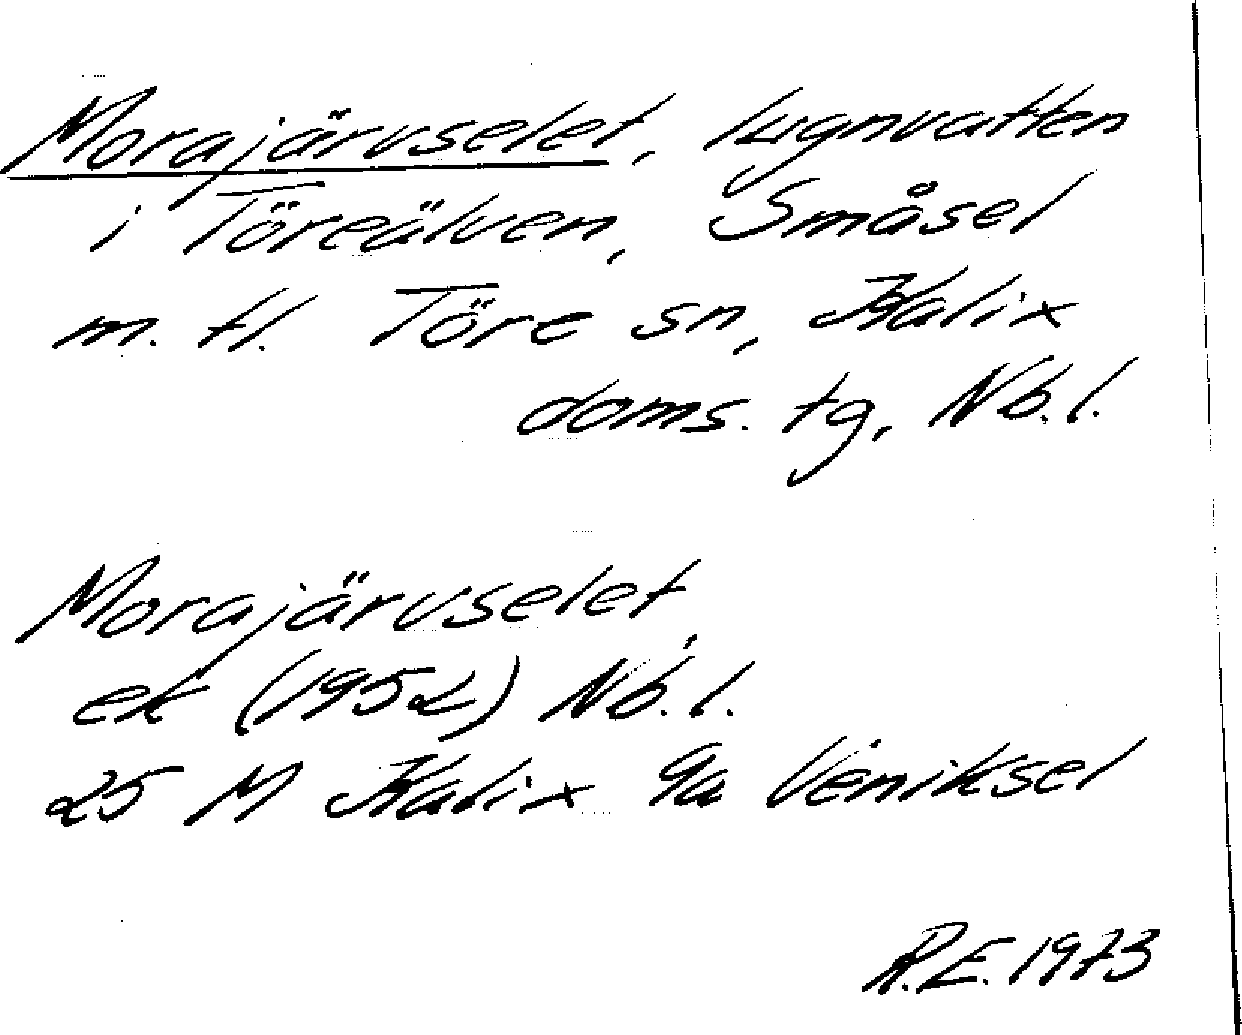 Morajärvselet, lugnvatten
i Töreälven, Småsel
m. fl. Töre sn, Kalix
doms. tg, Nb. l.
Morajärvselet,
ek (1952) Nb. l.
25 M Kalix 9a Veniksel
R.E. 1973